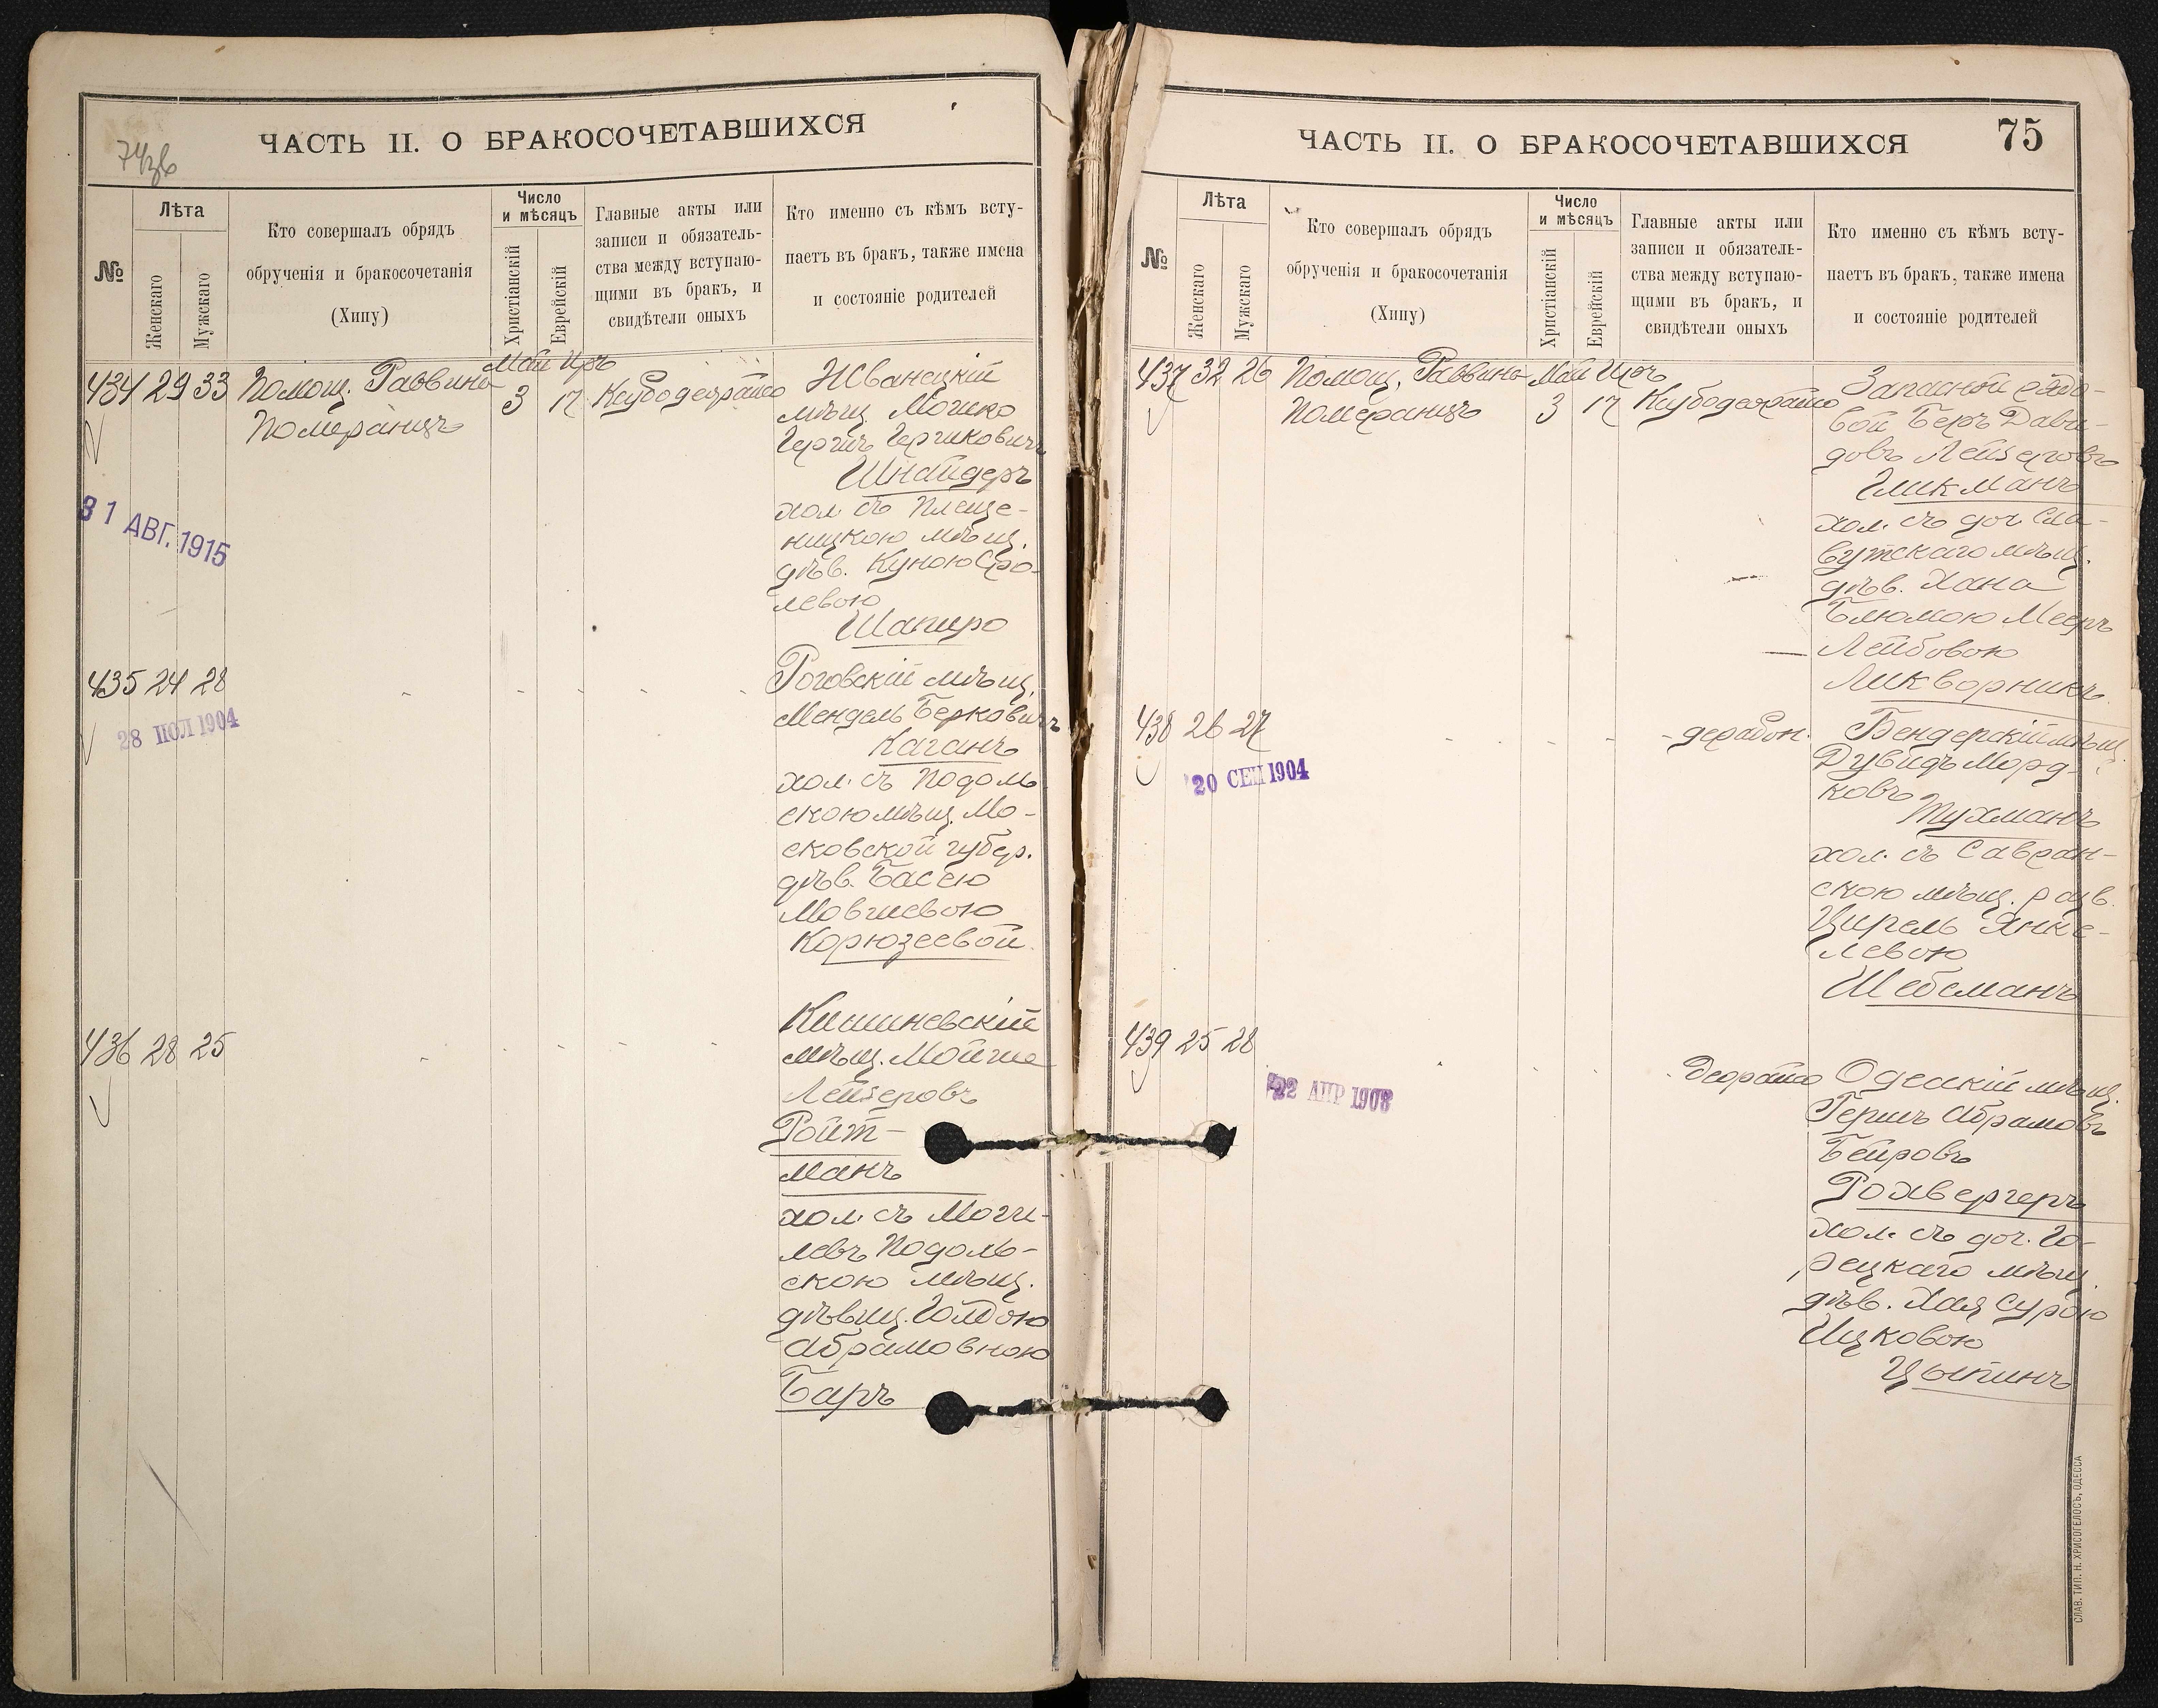 74зв
ЧАСТЬ II. О БРАКОСОЧЕТАВШИХСЯ
№
Лѣта
Женскаго
Мужскаго
Кто совершалъ обрядъ
обрученія и бракосочетанія
(Хипу)
Число
и мѣсяцъ
Христіанскій
Еврейскій
Главные акты или
записи и обязатель-
ства между вступаю-
щими въ бракъ, и
свидѣтели оныхъ
Кто именно съ кѣмъ всту-
паетъ въ бракъ, также имена
и состояніе родителей
434 29 33 Помощ. Раввина
Померанцъ
Май Іяръ
3 17
Жванецкій
мѣщ. Мошко
Гершъ Гершковичъ
Шнайдеръ
хол. съ Плеще-
ницкою мѣщ.
дѣв. Куною Сро-
левою
Шапиро
31 АВГ. 1915
435 24 28
28 ІЮЛ 1904
Роговскій мѣщ.
Мендель Берковичъ
Каганъ
хол. съ Подоль
скою мѣщ. Мо-
сковской губер.
дѣв. Басею
Мовшевою
Корюзеевой
436 28 25
Кишиневскій
мѣщ. Мойше
Лейзеровъ
Ройт-
манъ
хол. съ Моги-
левъ Подоль-
скою мѣщ.
дѣвиц. Голдою
Абрамовною
Баръ
ЧАСТЬ II. О БРАКОСОЧЕТАВШИХСЯ
75
№
Лѣта
Женскаго
Мужскаго
Кто совершалъ обрядъ
обрученія и бракосочетанія
(Хипу)
Число
и мѣсяцъ
Христіанскій
Еврейскій
Главные акты или
записи и обязатель-
ства между вступаю-
щими въ бракъ, и
свидѣтели оныхъ
Кто именно съ кѣмъ всту-
паетъ въ бракъ, также имена
и состояніе родителей
437 32 26 Помощ. Раввина
Померанцъ
Май
3 17
Запасной рядо-
вой Беръ Дави-
довъ Лейзеровъ
Гликманъ
хол. съ доч. Сла-
вутскаго мѣщ.
дѣв. Хана
Блюмою Мееръ
Лейбовою
Ликворникъ
438 26 27
20 СЕН 1904
Бендерскій мѣщ.
Дувидъ Морд-
ковъ
Тухманъ
хол. съ Савран-
скою мѣщ. разв.
Цирель Янке-
левою
Шебсманъ
439 25 28
22 АПР 1908
Одесскій мѣщ.
Гершъ Абрамовъ
Беировъ
Рохвергеръ
хол. съ доч. Го-
рецкаго мѣщ.
дѣв. Хая Сурою
Ицковою
Цыпинъ
СЛАВ. ТИП. Н. ХРИСОГЕЛОСЪ, ОДЕССА